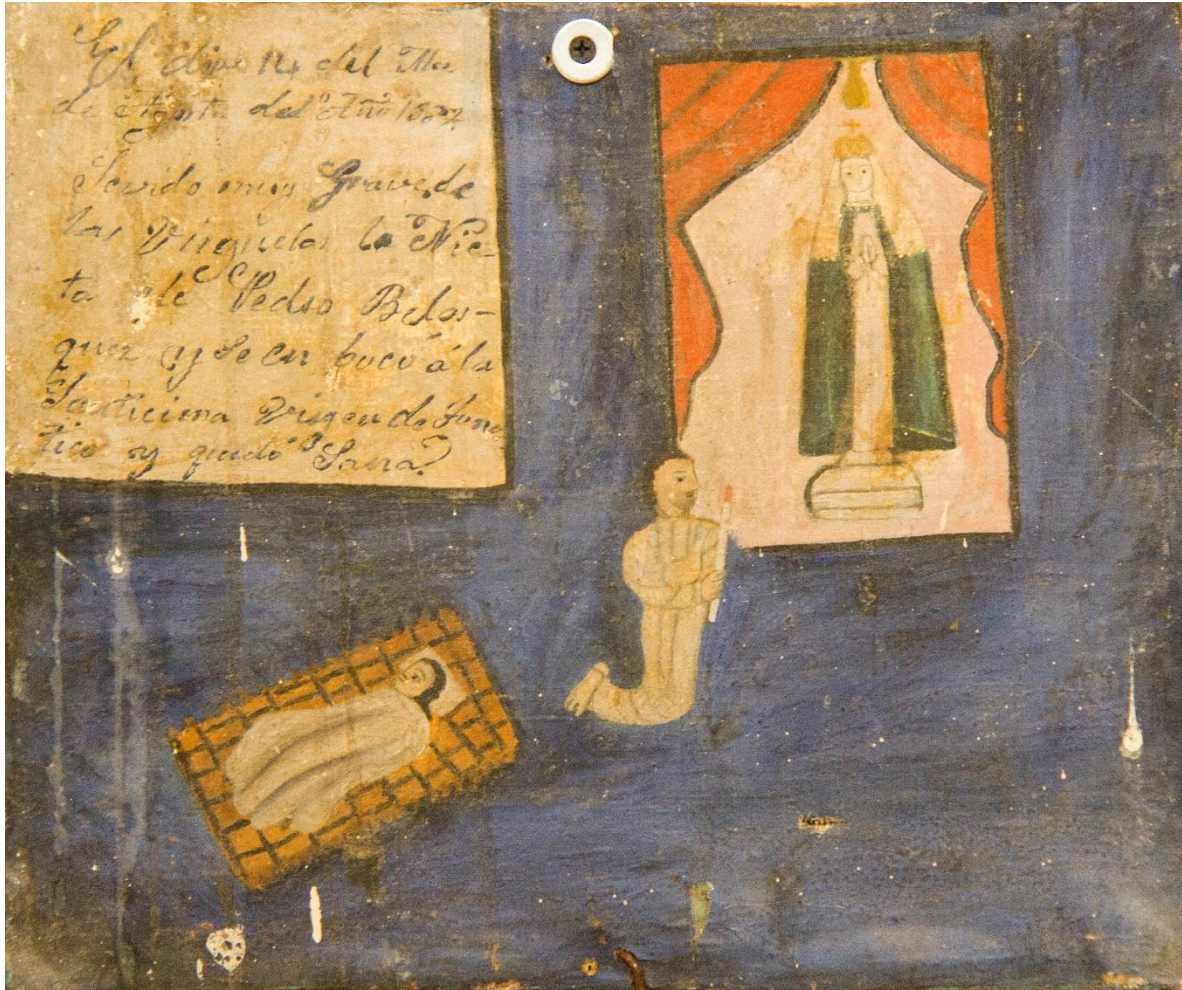 El dia 14 del Mes
de Agosto del Año
Servido muy Grave de
las Virguelas la Nie-
ta de Pedro Belas-
quez y se en bocó á la
Santicima Virgen de
tico y quedó Sana